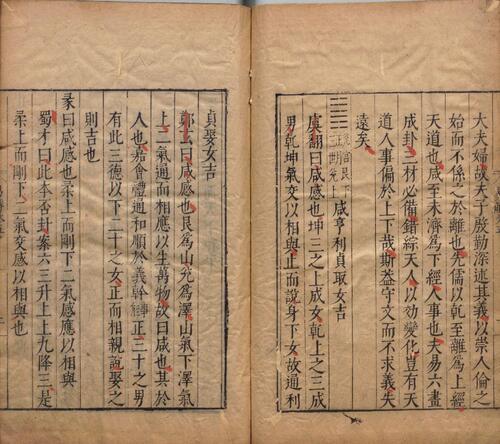 大夫婦故天子殷勤深述其義以崇人倫之
始而不係之於離也先儒以乾至離為上經
天道也咸至未濟為下經人事也夫易六畫
成卦三材必備錯綜天人以効變化豈有天
道人事偏於上下哉斯益守文而不求義失
遠矣
艮下
兌上
咸亨利貞取女吉
虞翻曰咸感也坤三之上成女乾上之三成
男乾坤氣交以相與止而說男下女故通利
貞娶女吉
鄭玄曰咸感也艮為山兌為澤山氣下澤氣
上二氣通而相應以生萬物故曰咸也其於
人也嘉會禮通和順於義幹事能正三十之男
有此三德以下二十之女正而相親說娶之
則吉也
彖曰咸感也柔上而剛下二氣感應以相與
蜀才曰此本否卦案六三升上上九降三是
柔上而剛下二氣交感以相與也